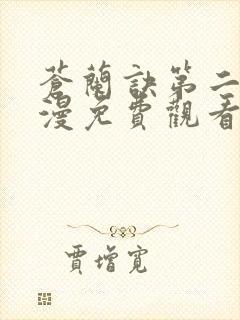 蒼蘭訣第二
漫免費觀看
賈增寬